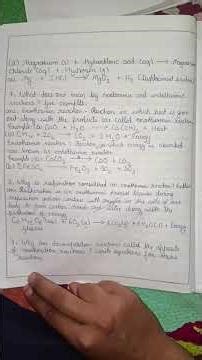 (d) Magnesium (s) + Hydrochloric acid (aq) → Magnesium
Chloride (aq) + Hydrogen (g)
Mg + 2HCl → MgCl2 + H2
7. What does one mean by exothermic and endothermic
reactions? Give examples.
Exothermic reaction - Reaction in which heat is given
out along with the products are called exothermic reaction
Example: (a) CaO + H2O → Ca(OH)2 + Heat
(b) CH4 + 2O2 → CO2 + 2H2O + Energy
Endothermic reaction - reaction in which energy is absorbed
are known as endothermic reaction
Example: (a) CaCO3 → CaO + CO2
(b) 2FeSO4 → Fe2O3 + SO2 + SO3
8. Why is respiration considered an exothermic reaction?
Respiration is an exothermic
oxygen in the cells of our
body to form carbon dioxide and water along with the
production of energy
C6H12O6 + 6O2 → 6CO2 + 6H2O + Energy
glucose
9. Why are decomposition reactions called the opposite
of combination reactions? Write equations for these
reactions